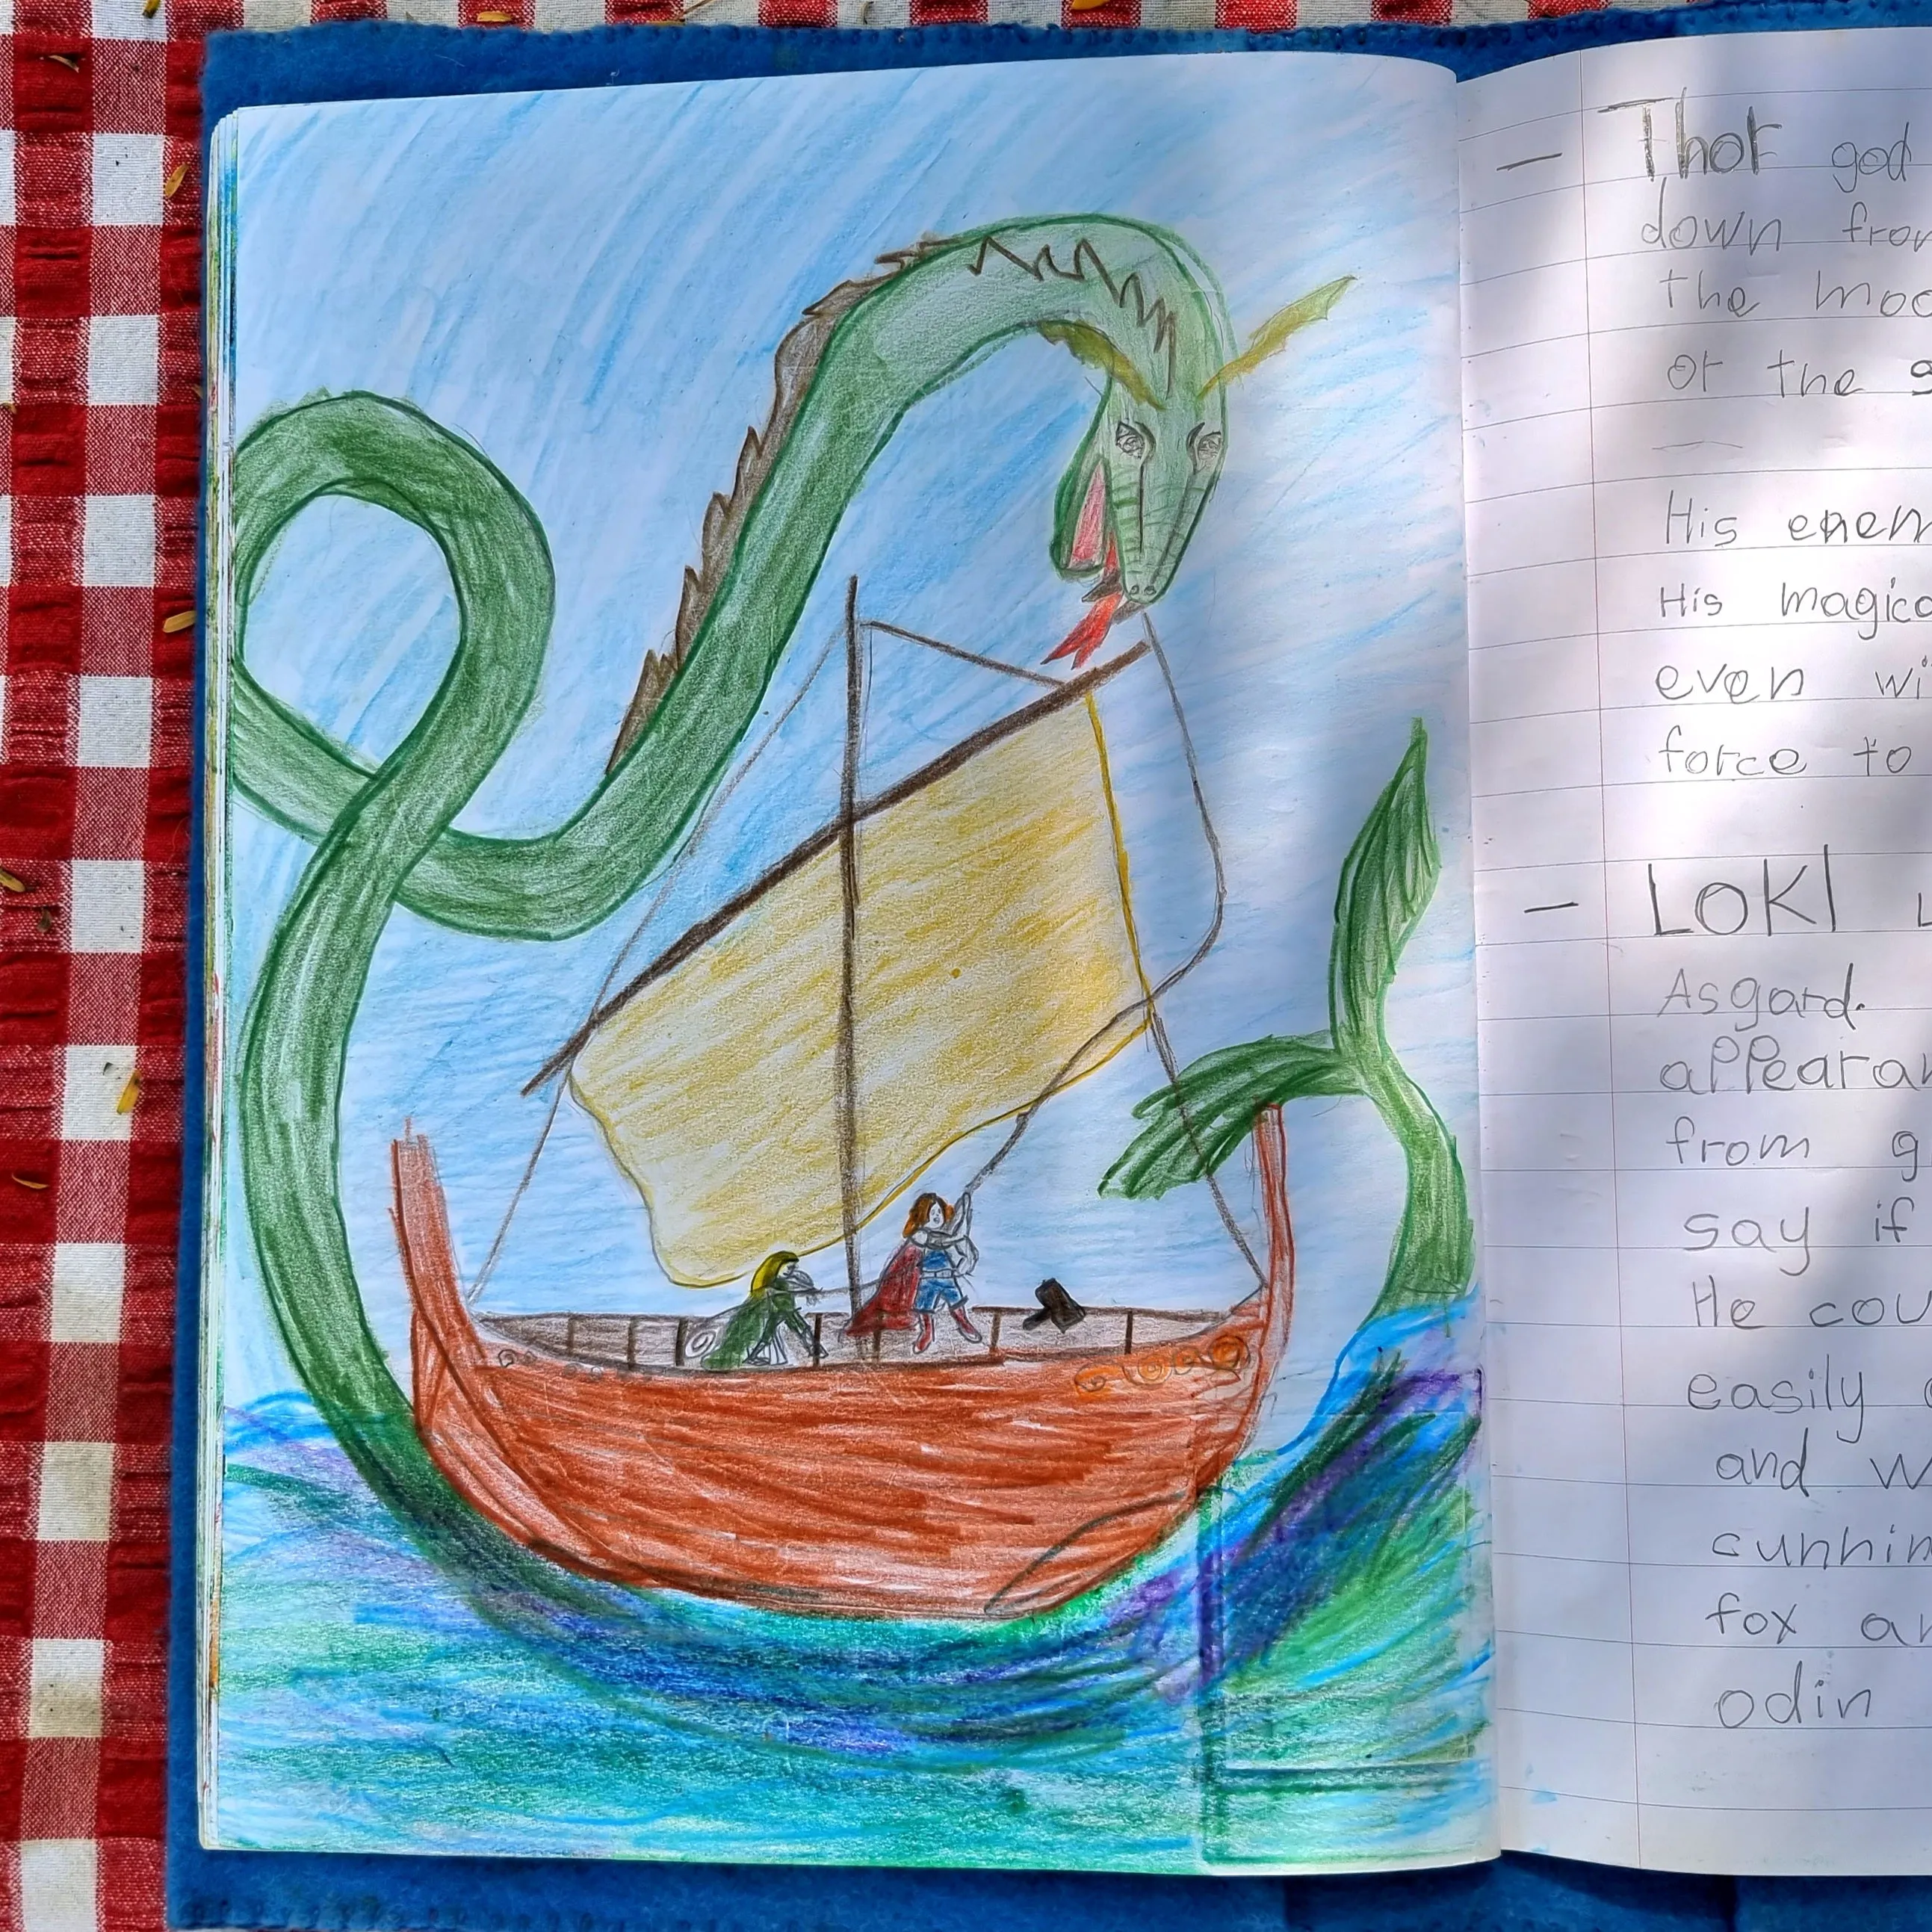 — Thor god
down from
the moo
or the s
His enem
His magica
even wi
force to
— LOKI
Asgard.
appearan
from g
say if
He cou
easily
and w
cunnin
fox an
odin